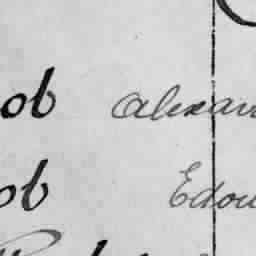 ob Alexan
ob Edou